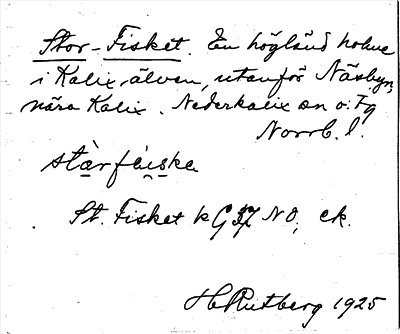 Stor-Fisket. En högländ holme
i Kalix älven, utanför Näsbyn,
nära Kalix. Nederkalix sn o. Fg
Norrb. l.
stàrfáiska
St. Fisket k G 37 NO, ek.
H Rutberg 1925